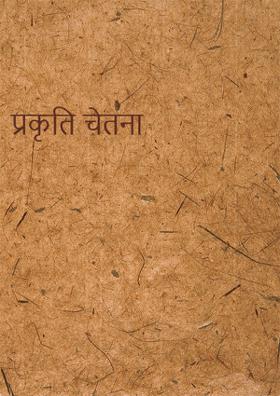 प्रकृति चेतना